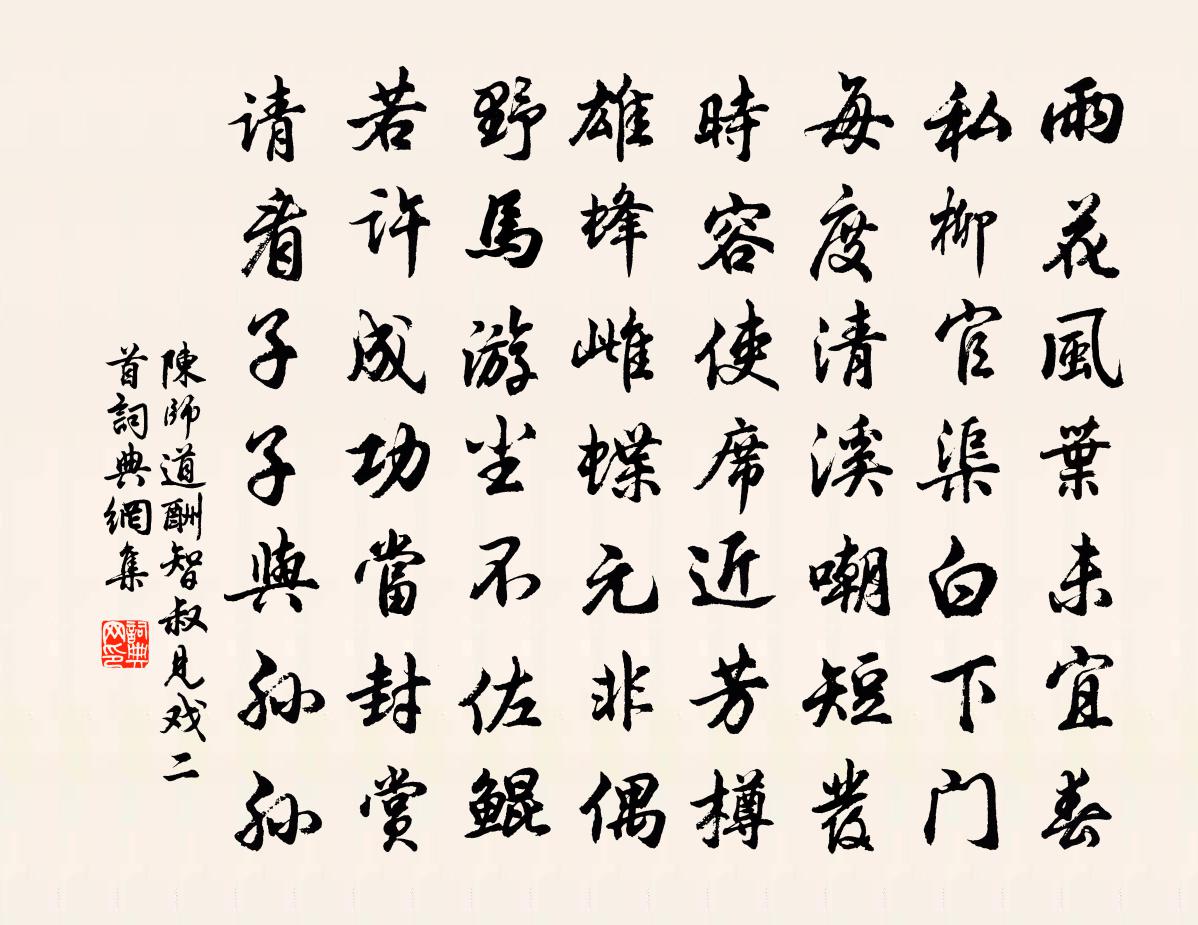 雨花風葉未宜春
私柳官渠白下門
每度清溪嘲短發
時容使席近芳樽
雄蜂雌蝶元非偶
野馬游尘不佐鯤
若许成功當封赏
请看子子與孙孙
陳師道酬智叔見戏二
首詞典網集
詞典
网印